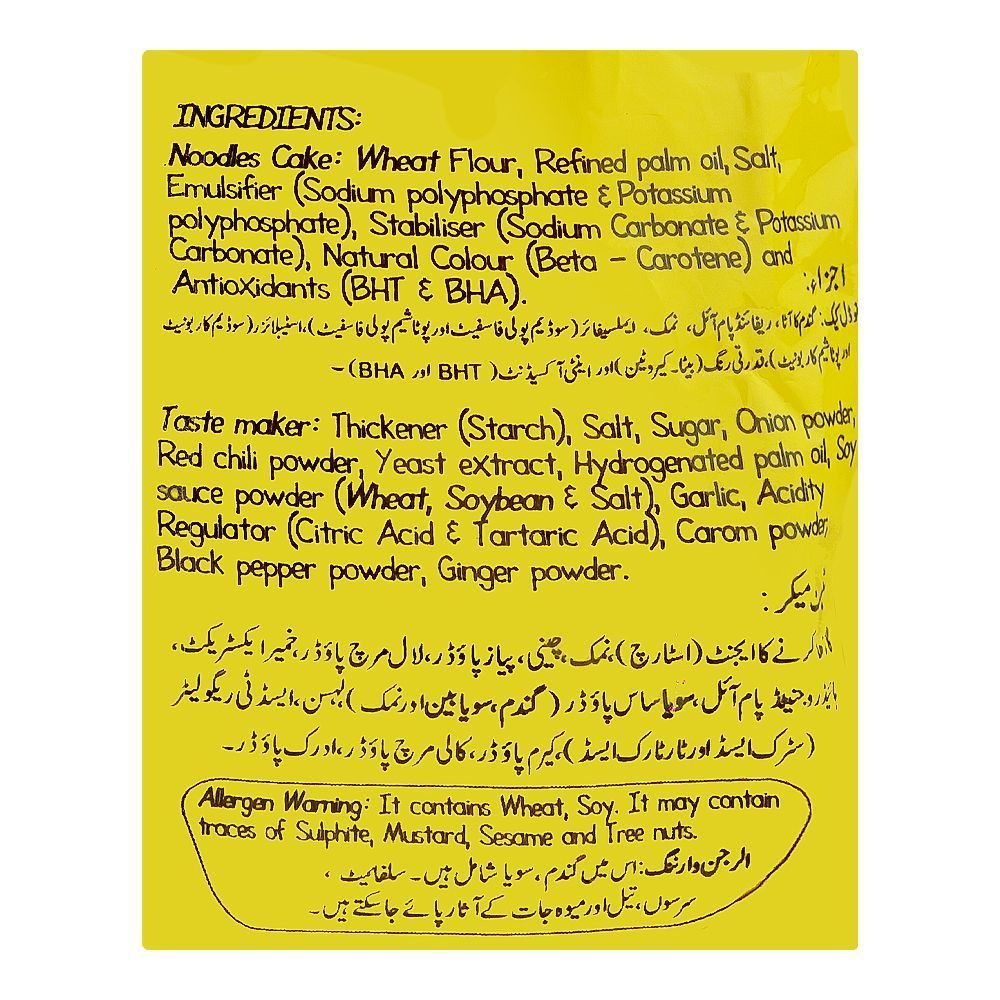 INGREDIENTS:
Noodles Cake: Wheat Flour, Refined palm oil, Salt,
Emulsifier (Sodium polyphosphate & Potassium
polyphosphate), Stabiliser (Sodium Carbonate & Potassium
Carbonate), Natural Colour (Beta - Carotene) and
Antioxidants (BHT & BHA).
اجزاء:
نوڈل کیک: گندم کا آٹا، ریفائنڈ پام آئل، نمک، ایملسیفائر (سوڈیم پولی فاسفیٹ اور پوٹاشیم پولی فاسفیٹ)، اسٹیبلائزر (سوڈیم کاربونیٹ
اور پوٹاشیم کاربونیٹ)، قدرتی رنگ (بیٹا۔ کیروٹین) اور اینٹی آکسیڈنٹ (BHT اور BHA) ۔
Taste maker: Thickener (Starch), Salt, Sugar, Onion powder,
Red chili powder, Yeast extract, Hydrogenated palm oil, Soy
sauce powder (Wheat, Soybean & Salt), Garlic, Acidity
Regulator (Citric Acid & Tartaric Acid), Carom powder,
Black pepper powder, Ginger powder.
میکر :
کرنے کا ایجنٹ (اسٹارچ)، نمک، چینی، پیاز پاؤڈر، لال مرچ پاؤڈر، خمیر ایکسٹریکٹ،
ہائیڈروجنیٹڈ پام آئل، سویا ساس پاؤڈر (گندم، سویا بین اور نمک)، لہسن، ایسڈٹی ریگولیٹر
(سٹرک ایسڈ اور ٹارٹارک ایسڈ)، کیرم پاؤڈر، کالی مرچ پاؤڈر، ادرک پاؤڈر۔
Allergen Warning: It contains Wheat, Soy. It may contain
traces of Sulphite, Mustard, Sesame and Tree nuts.
الرجن وارننگ: اس میں گندم، سویا شامل ہیں۔ سلفائیٹ ،
سرسوں، تیل اور میوہ جات کے آثار پائے جاسکتے ہیں۔